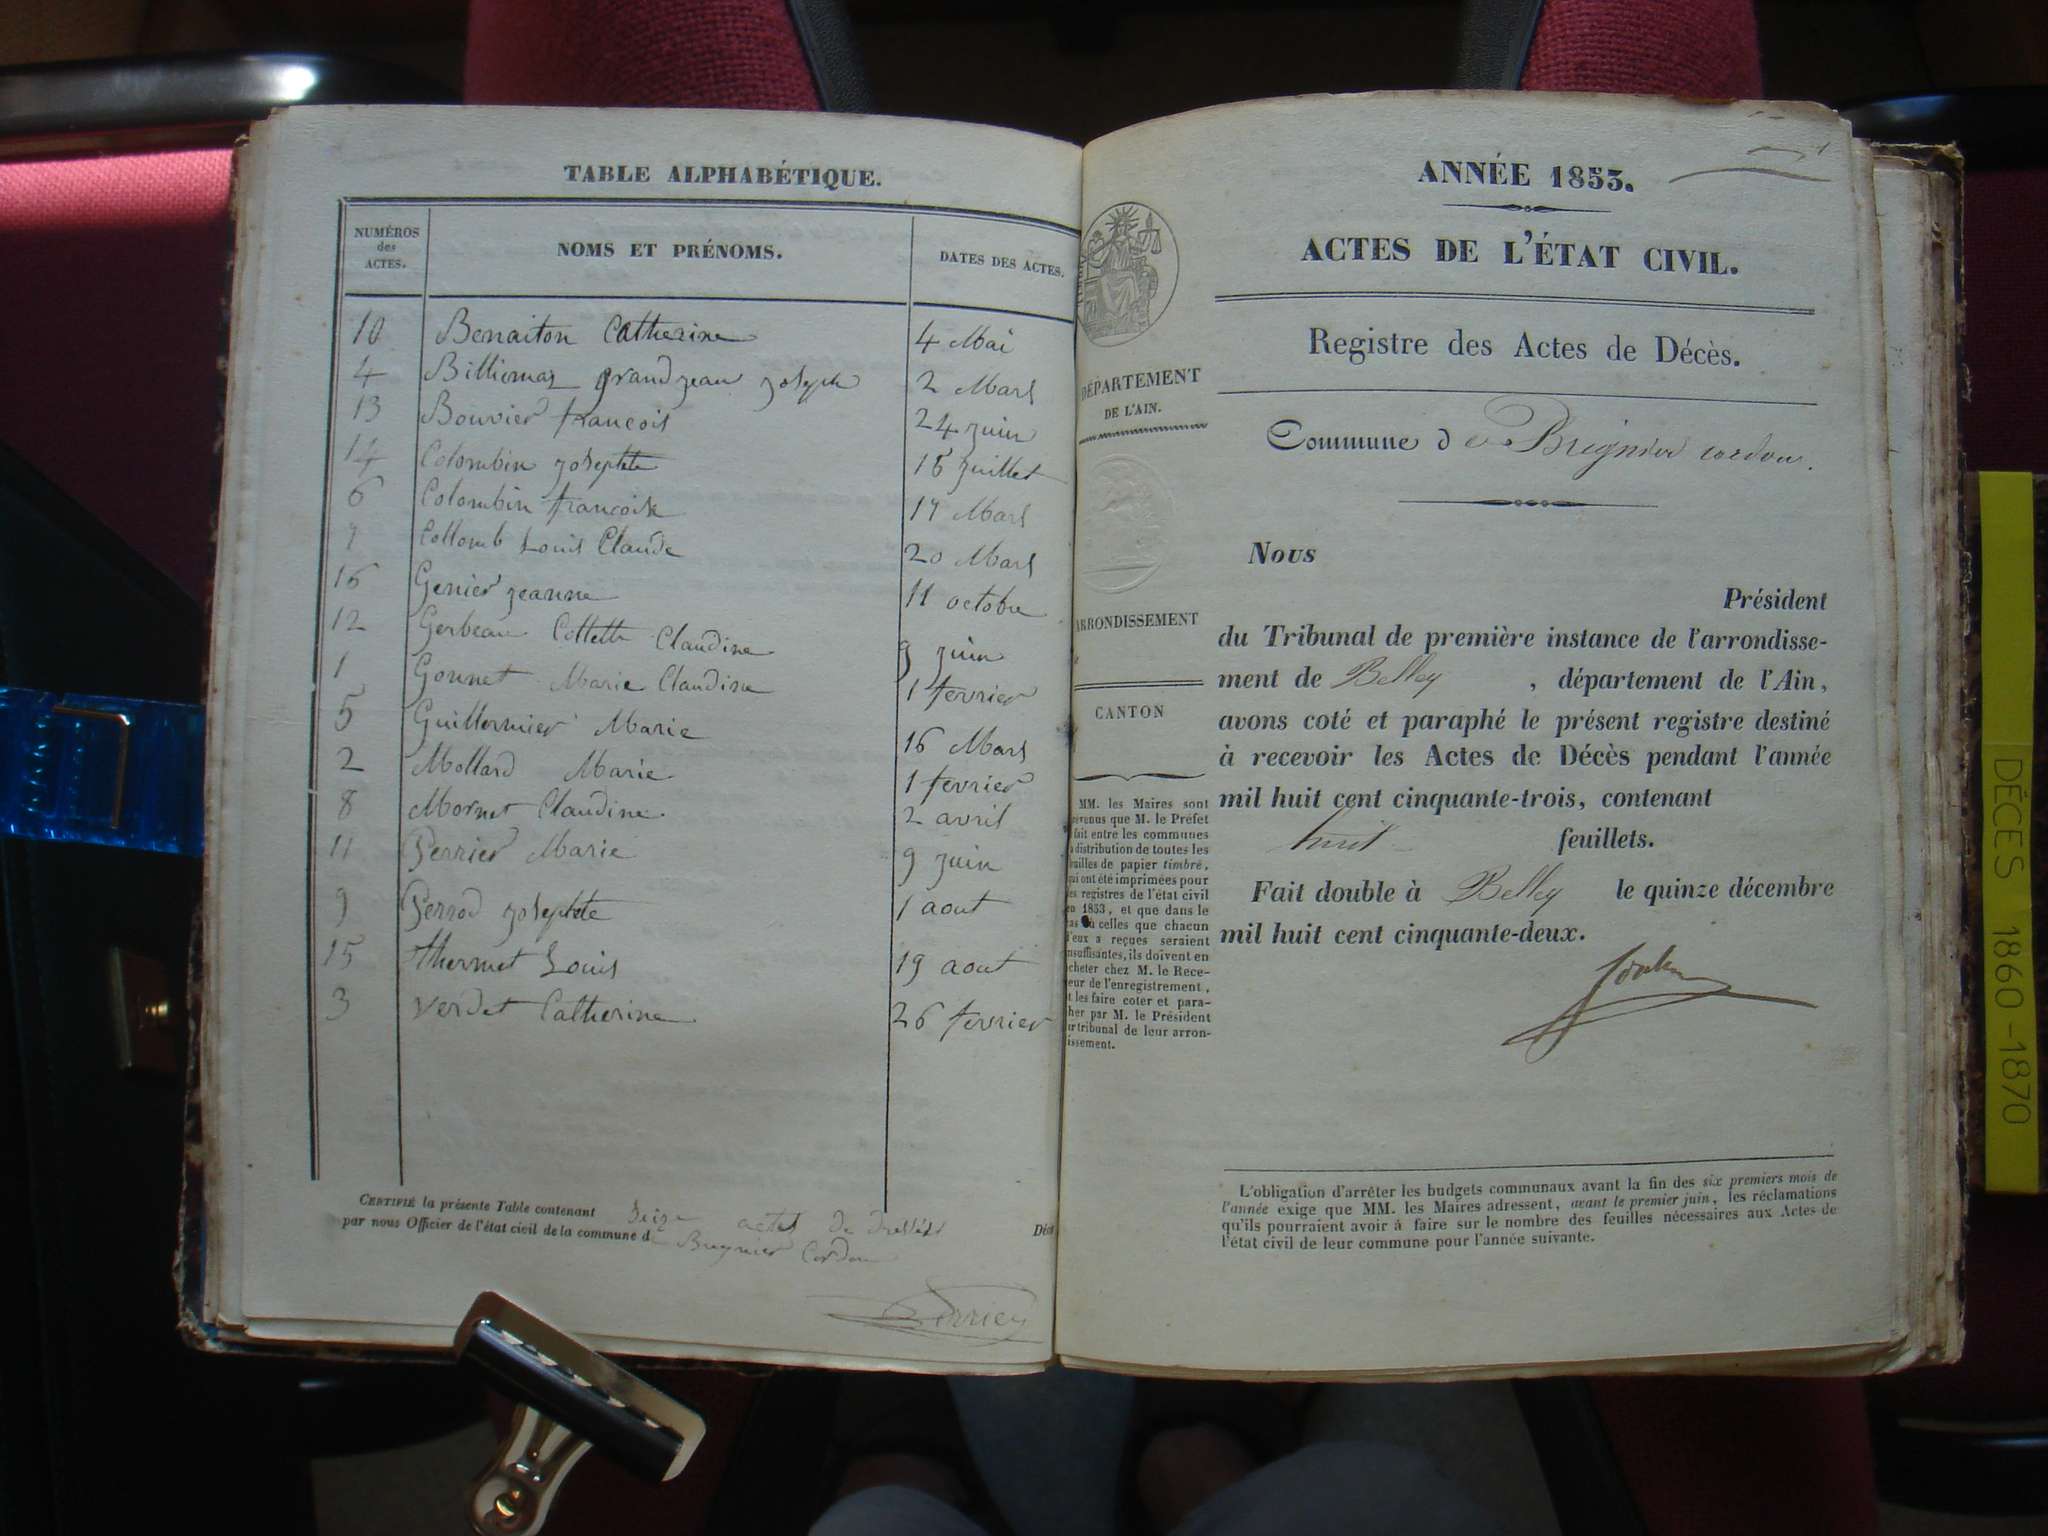 TABLE ALPHABÉTIQUE.
NUMÉROS
des
ACTES.
NOMS ET PRÉNOMS.
DATES DES ACTES.
10 Benaiton Catherine 4 Mai
4 Billiemaz grandjean joseph 2 Mars
13 Bouvier françois 24 juin
14 Colombin josephte juillet
6 Colombin francoise 17 Mars
7 Collomb Louis Claude 20 Mars
16 Genier jeanne 11 octobre
12 Gerbeau Collette Claudine 9 juin
1 Gonnet Marie Claudine 1 fevrier
5 Guillermier Marie 16 Mars
2 Mollard Marie 1 fevrier
8 Mornet Claudine 2 avril
11 Perrier Marie 9 juin
9 Perrod josephte 1 aout
15 thermet Louis 19 aout
3 verdet Catherine 26 fevrier
CERTIFIÉ la présente Table contenant seize actes de
par nous Officier de l'état civil de la commune d Bregnier Cordon
ANNÉE 1853.
ACTES DE L'ÉTAT CIVIL.
Registre des Actes de Décès.
Commune d e Brégnier cordon.
DÉPARTEMENT
DE L'AIN.
ARRONDISSEMENT
CANTON
MM. les Maires sont
prévenus que M. le Préfet
fait entre les communes
distribution de toutes les
feuilles de papier timbré,
qui ont été imprimées pour
les registres de l'état civil
en 1853, et que dans le
cas où celles que chacun
d'eux a reçues seraient
insuffisantes, ils doivent en
acheter chez M. le Rece-
veur de l'enregistrement,
et les faire coter et para-
pher par M. le Président
du tribunal de leur arron-
dissement.
Nous
Président
du Tribunal de première instance de l'arrondisse-
ment de Belley , département de l'Ain,
avons coté et paraphé le présent registre destiné
à recevoir les Actes de Décès pendant l'année
mil huit cent cinquante-trois, contenant
huit feuillets.
Fait double à Belley le quinze décembre
mil huit cent cinquante-deux.
L'obligation d'arrêter les budgets communaux avant la fin des six premiers mois de
l'année exige que MM. les Maires adressent, avant le premier juin, les réclamations
qu'ils pourraient avoir à faire sur le nombre des feuilles nécessaires aux Actes de
l'état civil de leur commune pour l'année suivante.
DÉCES 1860-1870